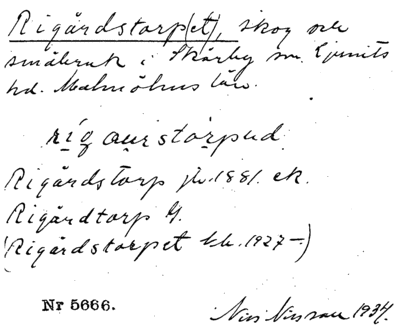 Rigårdstorp(et), skog och
småbruk i Skårby sn. Ljunits
hd. Malmöhus län.
rigaurstorpud.
Rigårdstorp jb. 1881. ek.
Rigårdtorp G.
(Rigårdstorpet kb. 1927 –)
Nr 5666.
Nils Nilsson 1934.